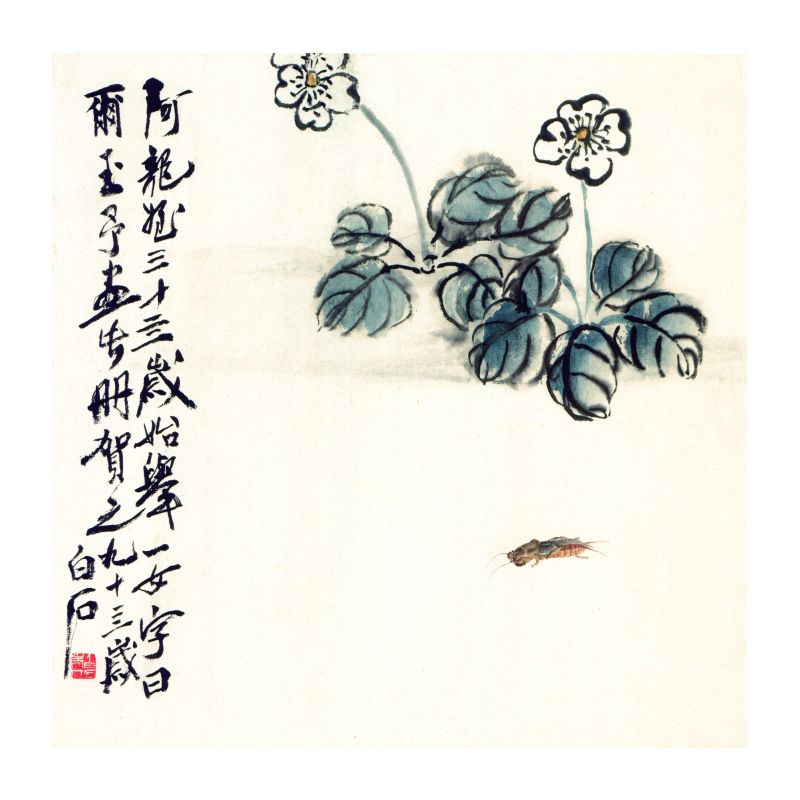 阿龍於三十三歲始舉一女字曰
爾玉予畫此冊賀之九十三歲
白石